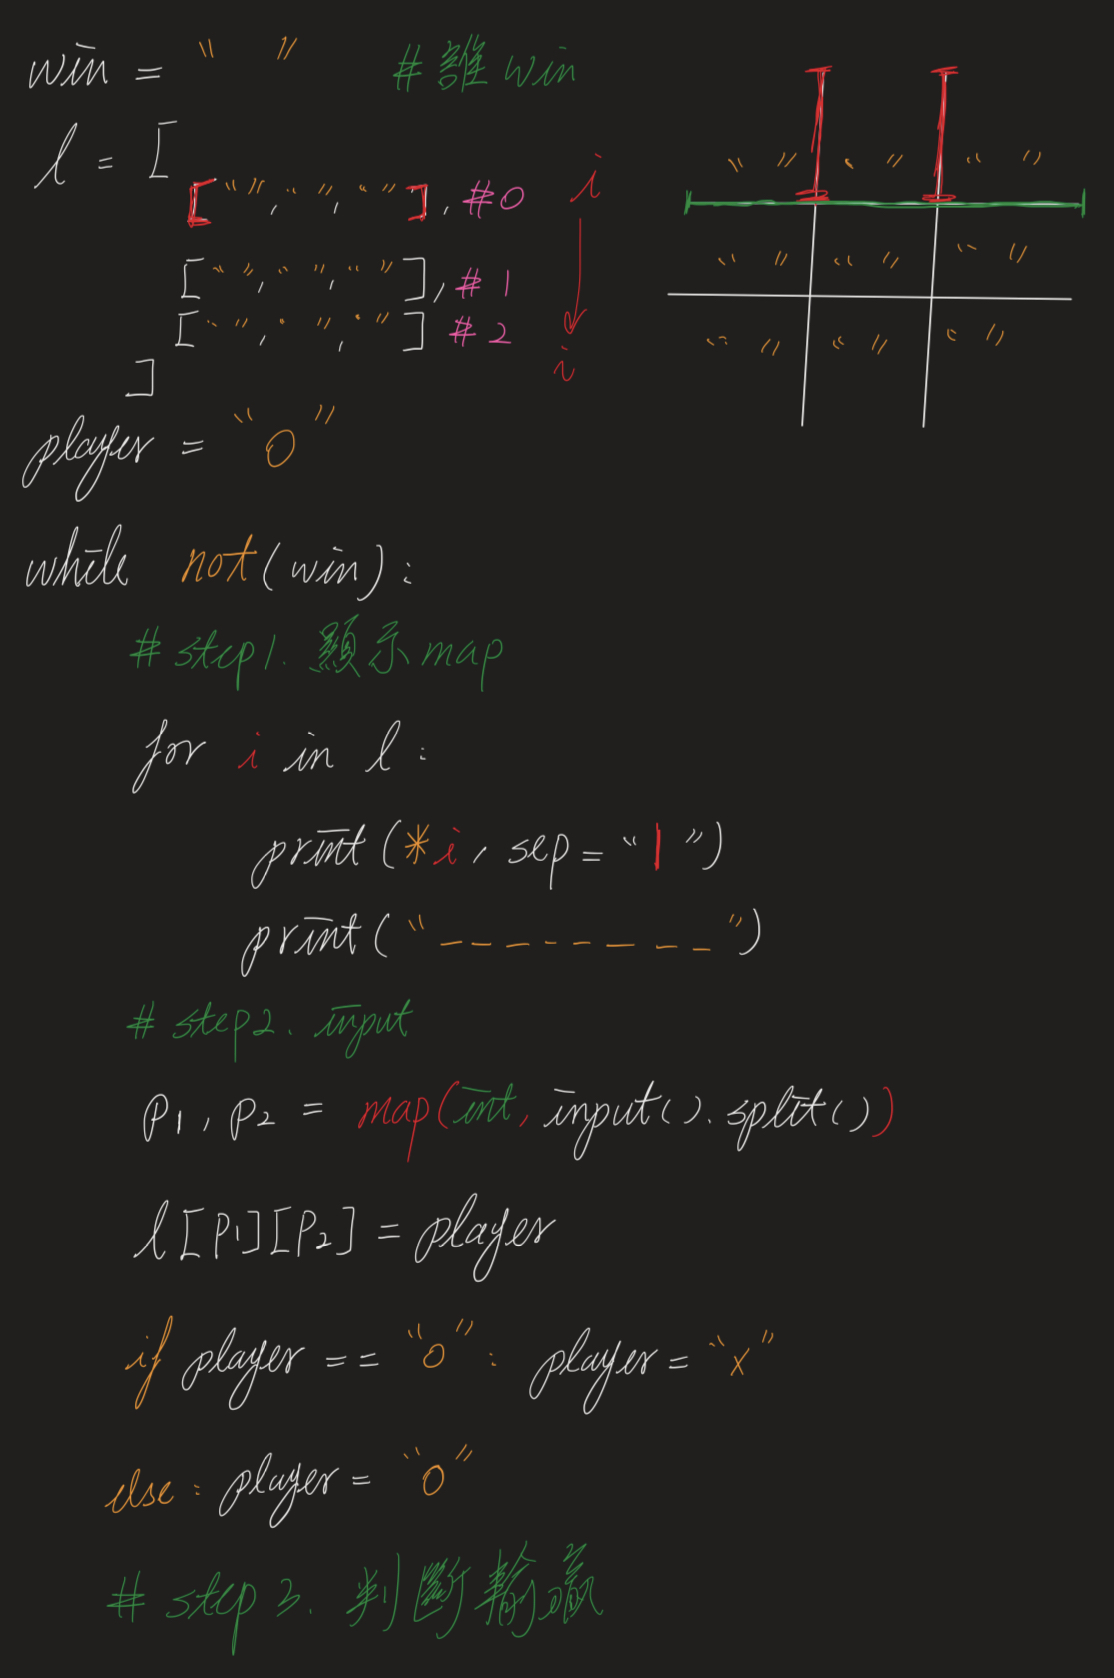 win = " " # 誰win
l = [
["","",""], #0
i
["","",""], #1
["","",""] #2
i
]
player = "O"
while not(win):
# step1. 顯示map
for i in l:
print(*i, sep="|")
print("_________")
# step2. input
p1, p2 = map(int, input().split())
l[p1][p2] = player
if player == "O": player = "X"
else: player = "O"
# step3. 判斷輸贏